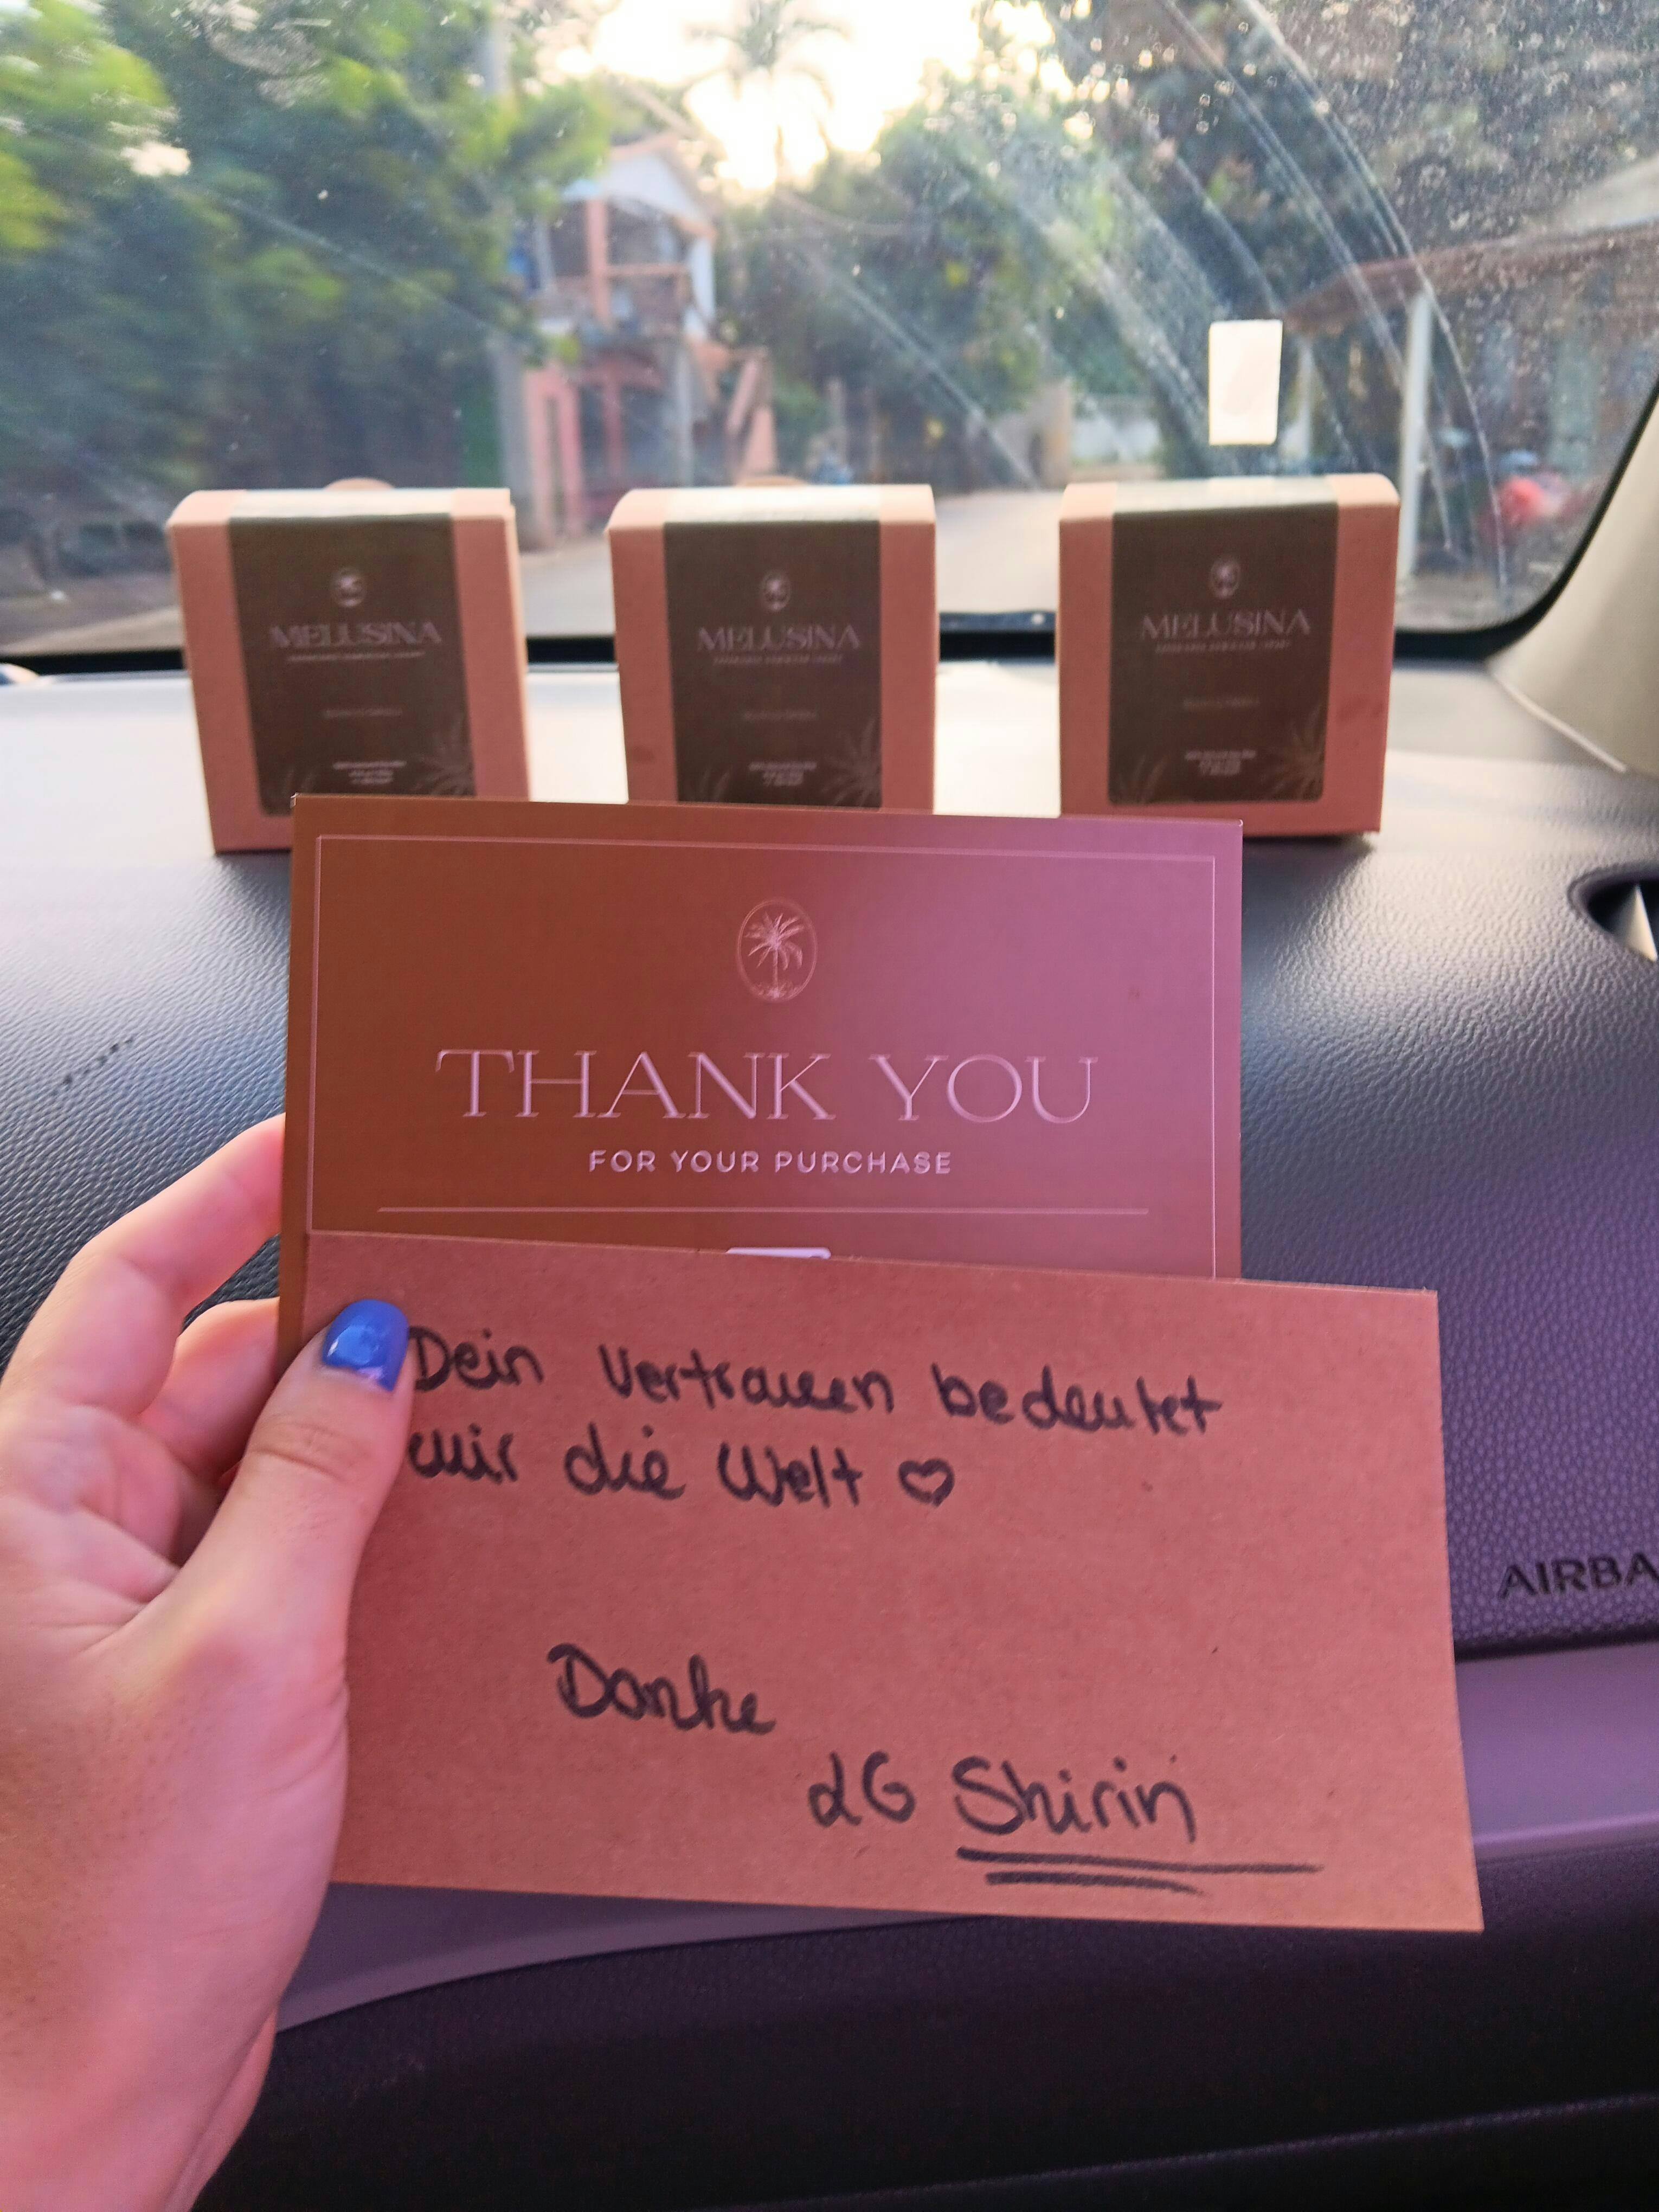 MELUSINA
MELUSINA
MELUSINA
THANK YOU
FOR YOUR PURCHASE
Dein Vertrauen bedeutet
mir die Welt ♡
Danke
LG Shirin
AIRBA